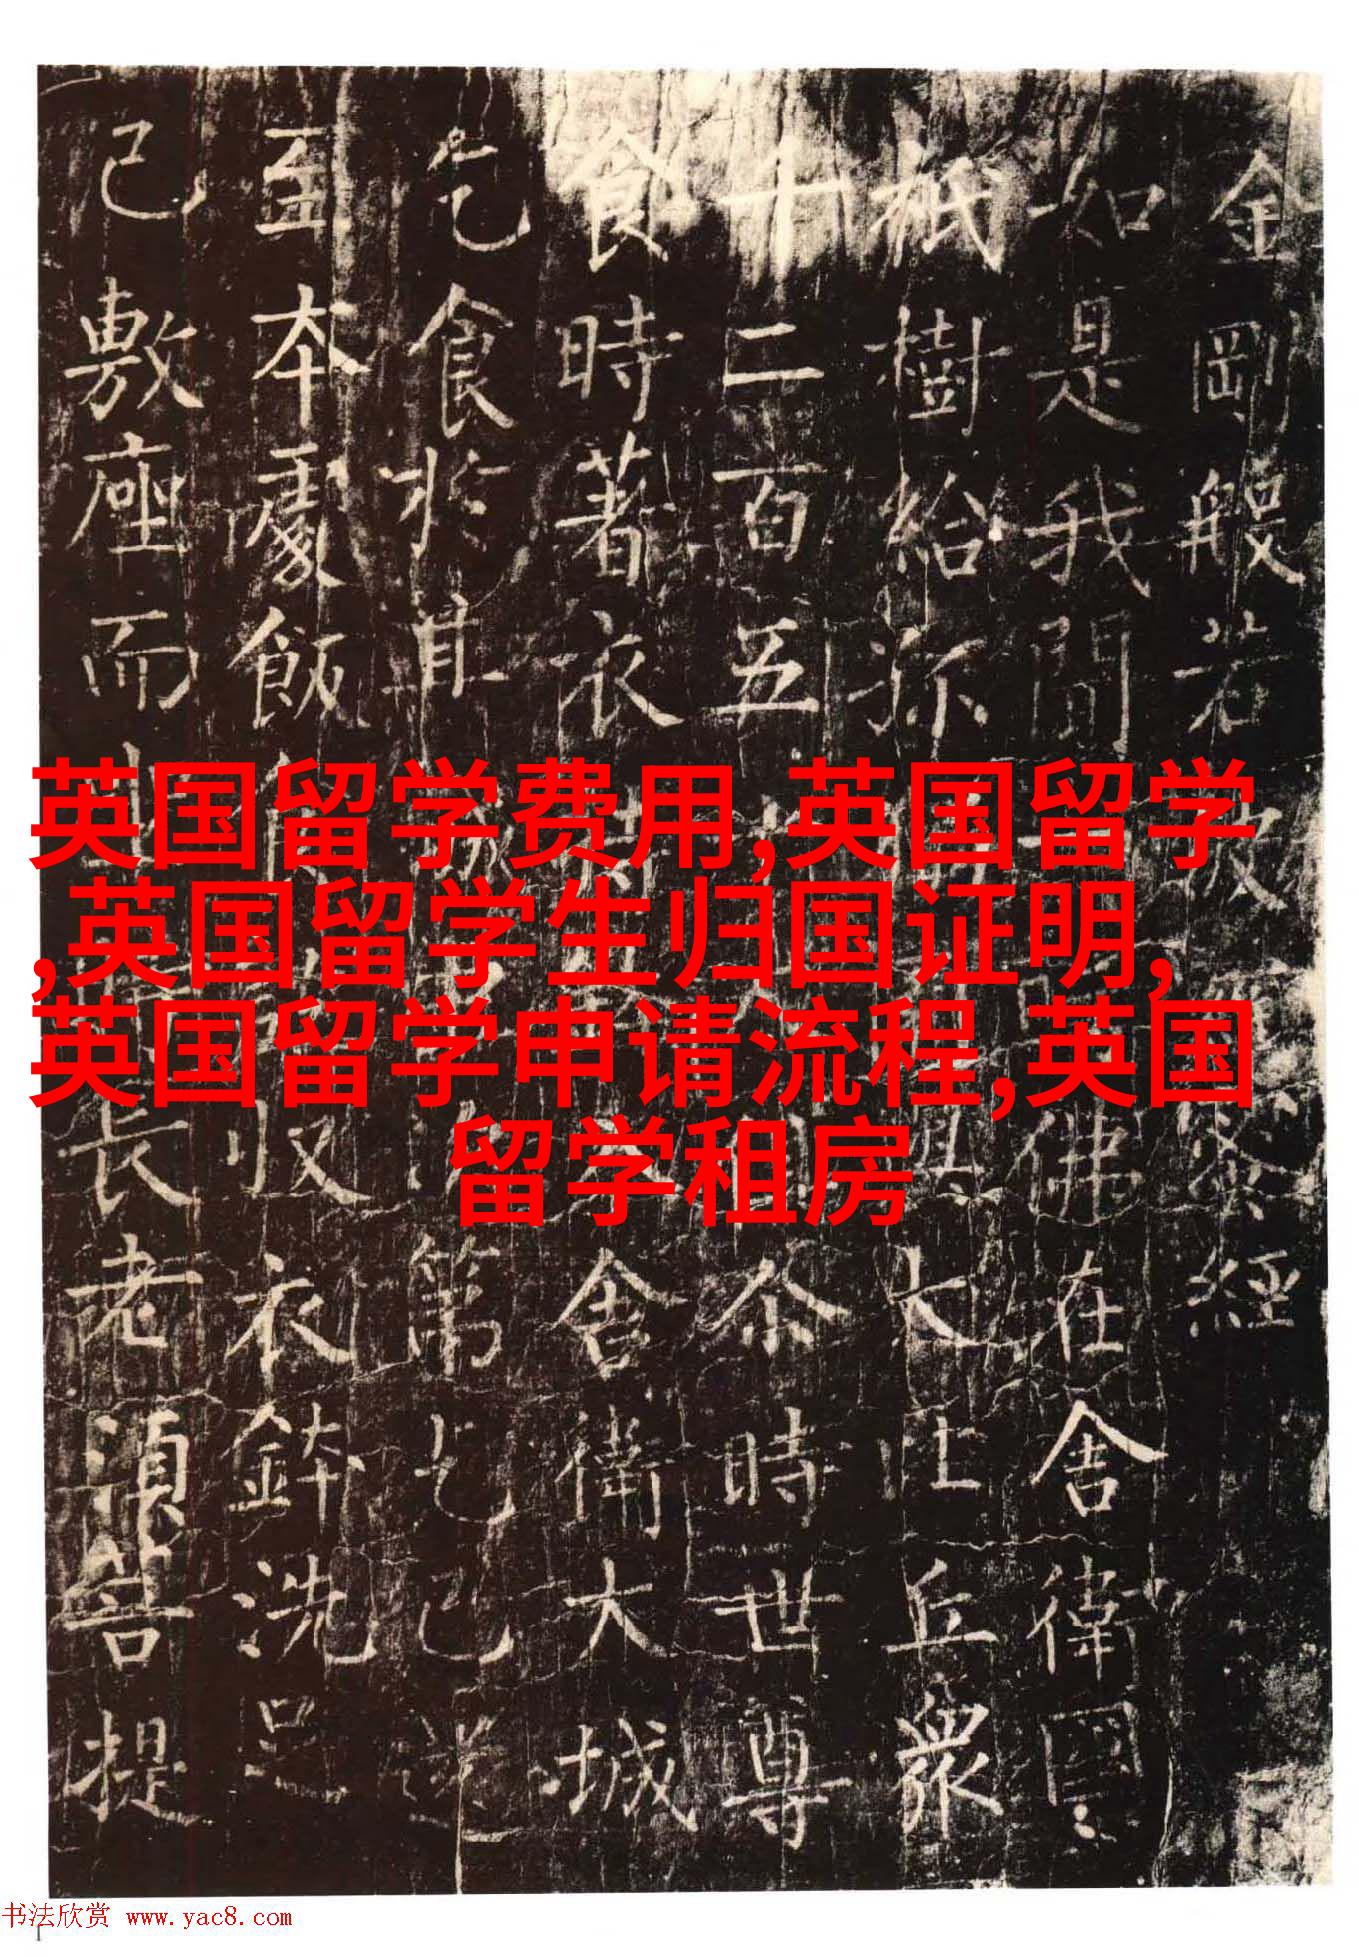 金剛般若波經
如是我聞一佛在舍衛國
祇樹給孤大比丘眾
十二百五尒時世尊
食時著衣持舍衛大城
乞食於其城第乞已還
至本處飯食收衣鉢洗足
已敷座而坐長老須菩提
英国留学费用,英国留学
,英国留学生归国证明,
英国留学申请流程,英国
留学租房
书法欣赏 www.yac8.com